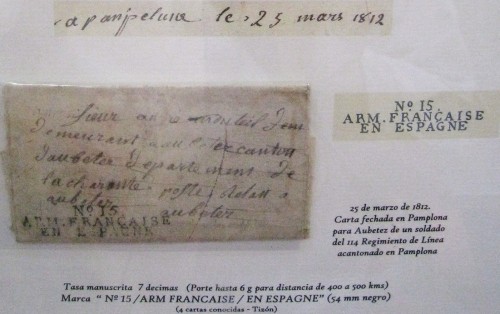 a panpelune le 25 mars 1812
Sieur
Demeurant canton
Daubeter Departement De
la charente poste
aubeter aubeter
Nº 15
ARM. FRANÇAISE
EN ESPAGNE
Nº 15.
ARM. FRANÇAISE
EN ESPAGNE
25 de marzo de 1812.
Carta fechada en Pamplona
para Aubetez de un soldado
del 114 Regimiento de Línea
acantonado en Pamplona
Tasa manuscrita 7 decimas (Porte hasta 6 g para distancia de 400 a 500 kms)
Marca " Nº 15 /ARM FRANCAISE / EN ESPAGNE" (54 mm negro)
(4 cartas conocidas - Tizón)